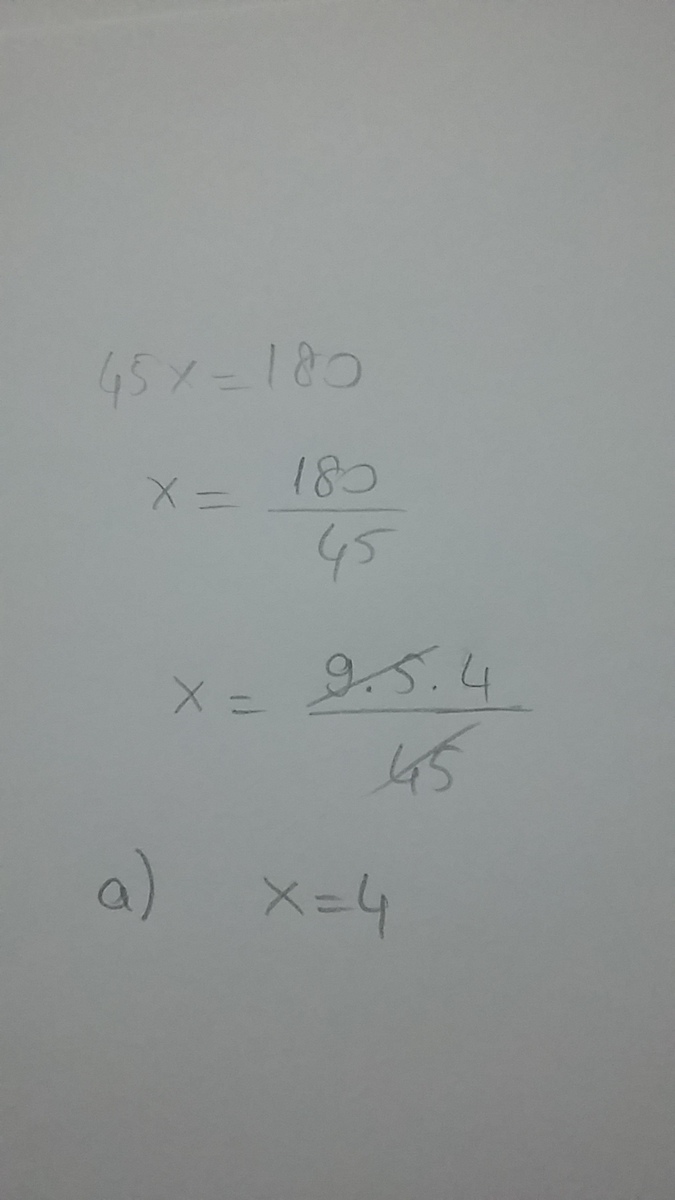 45x=180
x = 180/45
x = 9.5.4/45
a) x=4